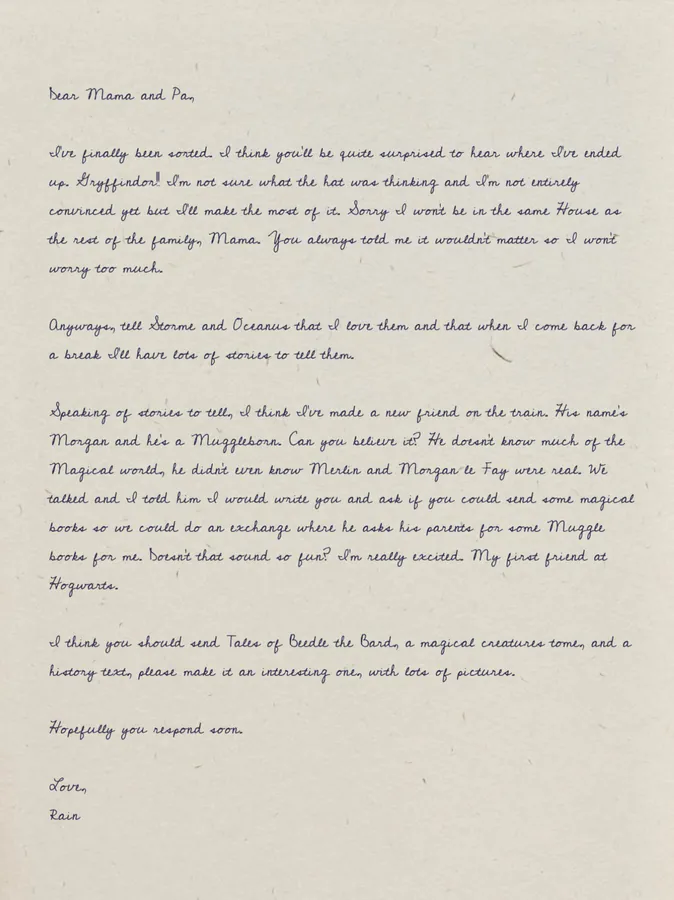 Dear Mama and Pa,
I've finally been sorted. I think you'll be quite surprised to hear where I've ended
up. Gryffindor!! I'm not sure what the hat was thinking and I'm not entirely
convinced yet but I'll make the most of it. Sorry I won't be in the same House as
the rest of the family, Mama. You always told me it wouldn't matter so I won't
worry too much.
Anyways, tell Storme and Oceanus that I love them and that when I come back for
a break I'll have lots of stories to tell them.
Speaking of stories to tell, I think I've made a new friend on the train. His name's
Morgan and he's a Muggleborn. Can you believe it? He doesn't know much of the
Magical world, he didn't even know Merlin and Morgan le Fay were real. We
talked and I told him I would write you and ask if you could send some magical
books so we could do an exchange where he asks his parents for some Muggle
books for me. Doesn't that sound so fun? I'm really excited. My first friend at
Hogwarts.
I think you should send Tales of Beedle the Bard, a magical creatures tome, and a
history text, please make it an interesting one, with lots of pictures.
Hopefully you respond soon.
Love,
Rain